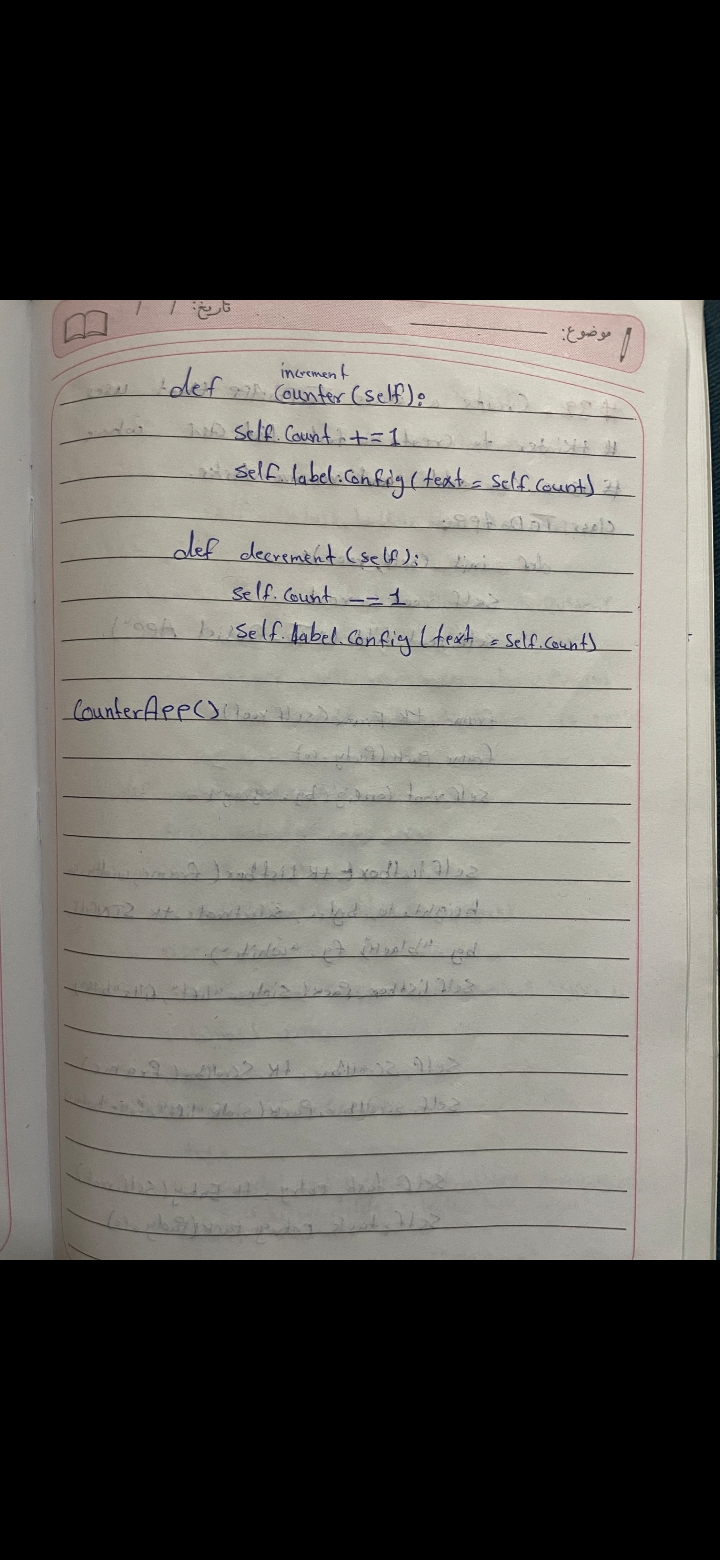 موضوع:
تاریخ: / /
increment
def counter(self):
self.count += 1
self.label.config(text = self.count)
def decrement(self):
self.count -= 1
self.label.config(text = self.count)
CounterApp()